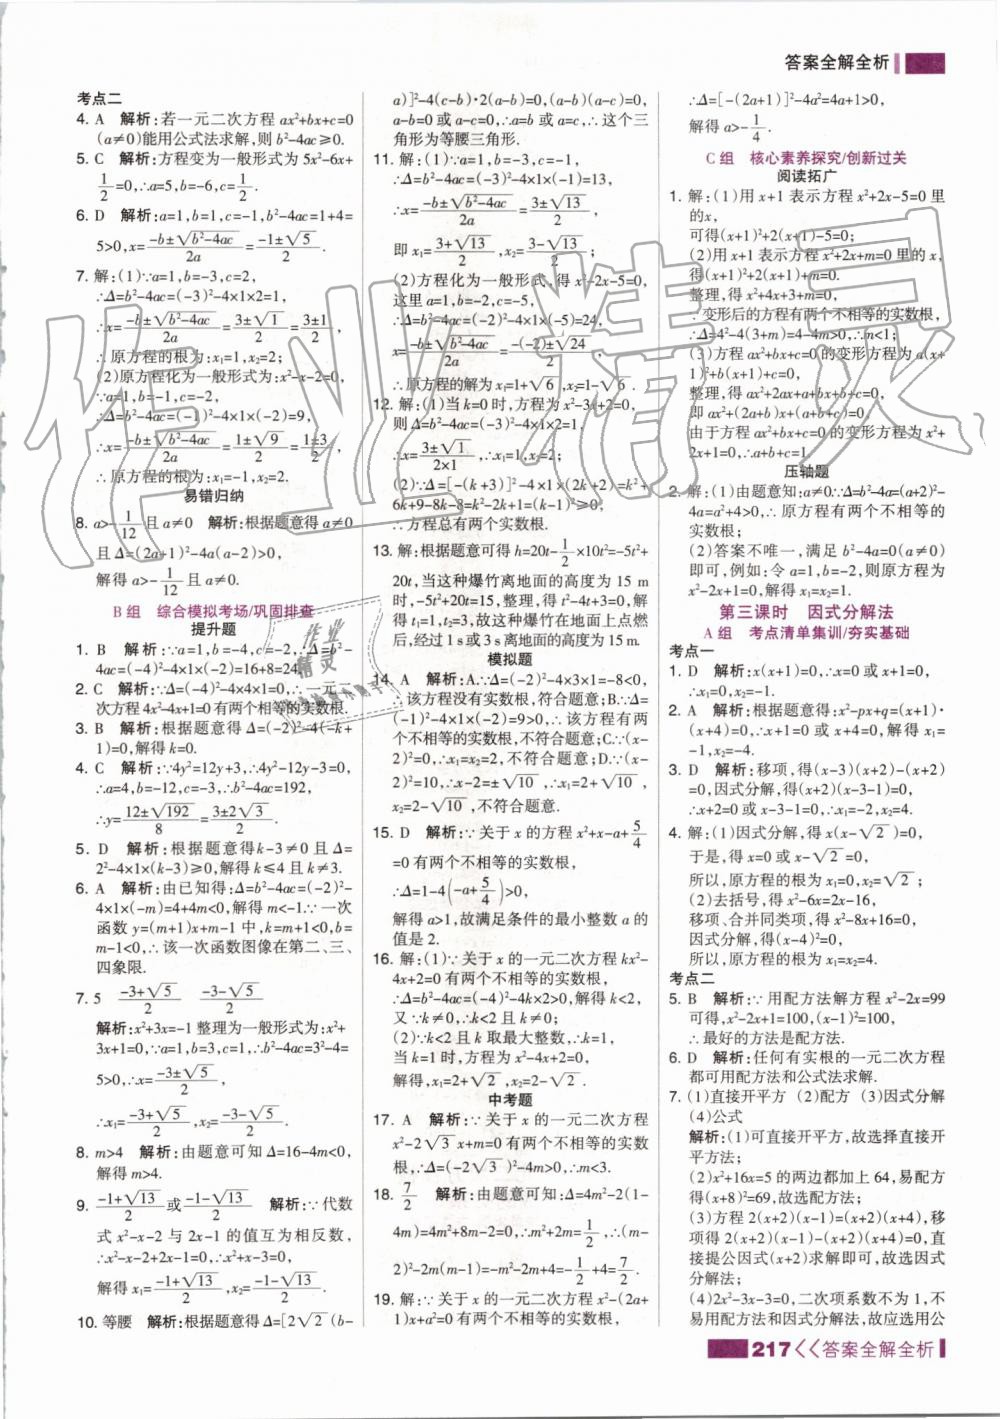 答案全解全析
考点二
4. A 解析:若一元二次方程 ax²+bx+c=0
(a≠0)能用公式法求解,则 b²-4ac≥0.
5. C 解析:方程变为一般形式为 5x²-6x+
1/2=0,∴a=5,b=-6,c=1/2.
6. D 解析:a=1,b=1,c=-1,b²-4ac=1+4=
5>0,x=(-b±√(b²-4ac))/2a=(-1±√5)/2.
7. 解:(1)∵a=1,b=-3,c=2,
∴Δ=b²-4ac=(-3)²-4×1×2=1,
∴x=(-b±√(b²-4ac))/2a=(3±√1)/2=(3±1)/2,
∴原方程的根为:x₁=1,x₂=2;
(2)原方程化为一般形式为:x²-x-2=0,
∵a=1,b=-1,c=-2,
∴Δ=b²-4ac=(-1)²-4×1×(-2)=9,
∴x=(-b±√(b²-4ac))/2a=(1±√9)/2=(1±3)/2,
∴原方程的根为:x₁=-1,x₂=2.
易错归纳
8. a>-1/12且 a≠0 解析:根据题意得 a≠0
且 Δ=(2a+1)²-4a(a-2)>0,
解得 a>-1/12且 a≠0.
B 组 综合模拟考场/巩固排查
提升题
1. B 解析:∵a=1,b=-4,c=-2,∴Δ=b²-
4ac=(-4)²-4×1×(-2)=16+8=24.
2. C 解析:∵Δ=(-4)²-4×4×1=0,∴一元二
次方程 4x²-4x+1=0 有两个相等的实数根.
3. B 解析:根据题意得 Δ=(-2)²-4(-k+
1)=0,解得 k=0.
4. C 解析:∵4y²=12y+3,∴4y²-12y-3=0,
∴a=4,b=-12,c=-3,∴b²-4ac=192,
∴y=(12±√192)/8=(3±2√3)/2.
5. D 解析:根据题意得 k-3≠0 且 Δ=
2²-4(k-3)≥0,解得 k≤4 且 k≠3.
6. A 解析:由已知得:Δ=b²-4ac=(-2)²-
4×1×(-m)=4+4m<0,解得 m<-1.∵一次
函数 y=(m+1)x+m-1 中,k=m+1<0,b=
m-1<0,∴该一次函数图像在第二、三、
四象限.
7. 5 (-3+√5)/2 (-3-√5)/2
解析:x²+3x=-1 整理为一般形式为:x²+
3x+1=0,∴a=1,b=3,c=1,∴b²-4ac=3²-4=
5>0,∴x=(-3±√5)/2,
∴x₁=(-3+√5)/2,x₂=(-3-√5)/2.
8. m>4 解析:由题意可知 Δ=16-4m<0,
解得 m>4.
9. (-1+√13)/2或(-1-√13)/2 解析:∵代数
式 x²-x-2 与 2x-1 的值互为相反数,
∴x²-x-2+2x-1=0,∴x²+x-3=0,
解得 x₁=(-1+√13)/2,x₂=(-1-√13)/2.
10. 等腰 解析:根据题意得 Δ=[2√2(b-
a)]²-4(c-b)·2(a-b)=0,(a-b)(a-c)=0,
a-b=0 或 a-c=0,∴a=b 或 a=c,∴这个三
角形为等腰三角形.
11. 解:(1)∵a=1,b=-3,c=-1,
∴Δ=b²-4ac=(-3)²-4×1×(-1)=13,
∴x=(-b±√(b²-4ac))/2a=(3±√13)/2,
即 x₁=(3+√13)/2,x₂=(3-√13)/2;
(2)方程化为一般形式,得 x²-2x-5=0,
这里 a=1,b=-2,c=-5,
∴Δ=b²-4ac=(-2)²-4×1×(-5)=24,
x=(-b±√(b²-4ac))/2a=(-(-2)±√24)/2,
∴原方程的解为 x₁=1+√6,x₂=1-√6.
12. 解:(1)当 k=0 时,方程为 x²-3x+2=0,
则 Δ=b²-4ac=(-3)²-4×1×2=1,
∴x=(3±√1)/(2×1),∴x₁=1,x₂=2;
(2)∵Δ=[-(k+3)]²-4×1×(2k+2)=k²+
6k+9-8k-8=k²-2k+1=(k-1)²≥0,
∴方程总有两个实数根.
13. 解:根据题意可得 h=20t-1/2×10t²=-5t²+
20t,当这种爆竹离地面的高度为 15 m
时,-5t²+20t=15,整理,得 t²-4t+3=0,解
得 t=1,t=3,故这种爆竹在地面上点燃
后,经过 1 s 或 3 s 离地面的高度为 15 m.
模拟题
14. A 解析:A.∵Δ=(-2)²-4×3×1=-8<0,
∴该方程没有实数根,符合题意;B.∵Δ=
(-1)²-4×1×(-2)=9>0,∴该方程有两
个不相等的实数根,不符合题意;C.∵(x-
2)²=0,∴x₁=x₂=2,不符合题意;D.∵(x-
2)²=10,∴x-2=±√10,∴x₁=2+√10,
x₂=2-√10,不符合题意.
15. D 解析:∵关于 x 的方程 x²+x-a+5/4
=0 有两个不相等的实数根,
∴Δ=1-4(-a+5/4)>0,
解得 a>1,故满足条件的最小整数 a 的
值是 2.
16. 解:(1)∵关于 x 的一元二次方程 kx²-
4x+2=0 有两个不相等的实数根,
∴Δ=b²-4ac=(-4)²-4k×2>0,解得 k<2,
又∵k≠0,∴k<2 且 k≠0;
(2)∵k<2 且 k 取最大整数,∴k=1,
当 k=1 时,方程为 x²-4x+2=0,
解得,x₁=2+√2,x₂=2-√2.
中考题
17. A 解析:∵关于 x 的一元二次方程
x²-2√3x+m=0 有两个不相等的实数
根,∴Δ=(-2√3)²-4m>0,∴m<3.
18. 7/2 解析:由题意可知:Δ=4m²-2(1-
4m)=4m²+8m-2=0,∴m²+2m=1/2,∴(m-
2)²-2m(m-1)=-m²-2m+4=-1/2+4=7/2.
19. 解:∵关于 x 的一元二次方程 x²-(2a+
1)x+a²=0 有两个不相等的实数根,
∴Δ=[-(2a+1)]²-4a²=4a+1>0,
解得 a>-1/4.
C 组 核心素养探究/创新过关
阅读拓广
1. 解:(1)用 x+1 表示方程 x²+2x-5=0 里
的x,
可得(x+1)²+2(x+1)-5=0;
(2)用 x+1 表示方程 x²+2x+m=0 里的 x,
得(x+1)²+2(x+1)+m=0.
整理,得 x²+4x+3+m=0.
∵变形后的方程有两个不相等的实数根,
∴Δ=4²-4(3+m)=4-4m>0,∴m<1;
(3)方程 ax²+bx+c=0 的变形方程为 a(x+
1)²+b(x+1)+c=0.
整理,得 ax²+2ax+a+bx+b+c=0,
即 ax²+(2a+b)x+(a+b+c)=0.
由于方程 ax²+bx+c=0 的变形方程为 x²+
2x+1=0,∴a+b+c=1.
压轴题
2. 解:(1)由题意知:a≠0.∵Δ=b²-4a=(a+2)²-
4a=a²+4>0,∴原方程有两个不相等的
实数根;
(2)答案不唯一,满足 b²-4a=0(a≠0)
即可,例如:令 a=1,b=-2,则原方程为
x²-2x+1=0,解得:x₁=x₂=1.
第三课时 因式分解法
A 组 考点清单集训/夯实基础
考点一
1. D 解析:x(x+1)=0,∴x=0 或 x+1=0,
∴x₁=0,x₂=-1.
2. A 解析:根据题意得:x²-px+q=(x+1)·
(x+4)=0,∴x+1=0 或 x+4=0,解得 x₁=
-1,x₂=-4.
3. D 解析:移项,得(x-3)(x+2)-(x+2)
=0,因式分解,得(x+2)(x-3-1)=0,
∴x+2=0 或 x-3-1=0,∴x₁=-2,x₂=4.
4. 解:(1)因式分解,得 x(x-√2)=0,
于是,得 x=0 或 x-√2=0,
所以,原方程的根为 x₁=0,x₂=√2;
(2)去括号,得 x²-6x=2x-16,
移项、合并同类项,得 x²-8x+16=0,
因式分解,得(x-4)²=0,
所以,原方程的根为 x₁=x₂=4.
考点二
5. B 解析:∵用配方法解方程 x²-2x=99
可得,x²-2x+1=100,(x-1)²=100,
∴最好的方法是配方法.
6. D 解析:任何有实根的一元二次方程
都可用配方法和公式法求解.
7. (1)直接开平方 (2)配方 (3)因式分解
(4)公式
解析:(1)可直接开平方,故选择直接开
平方法;
(2)x²+16x=5 的两边都加上 64,易配方
得(x+8)²=69,故选配方法;
(3)方程 2(x+2)(x-1)=(x+2)(x+4),移
项得 2(x+2)(x-1)-(x+2)(x+4)=0,直
接提公因式(x+2)求解即可,故选因式
分解法;
(4)2x²-3x-3=0,二次项系数不为 1,不
易用配方法和因式分解法,故应选用公
217<<答案全解全析
作业精灵
作业
精灵